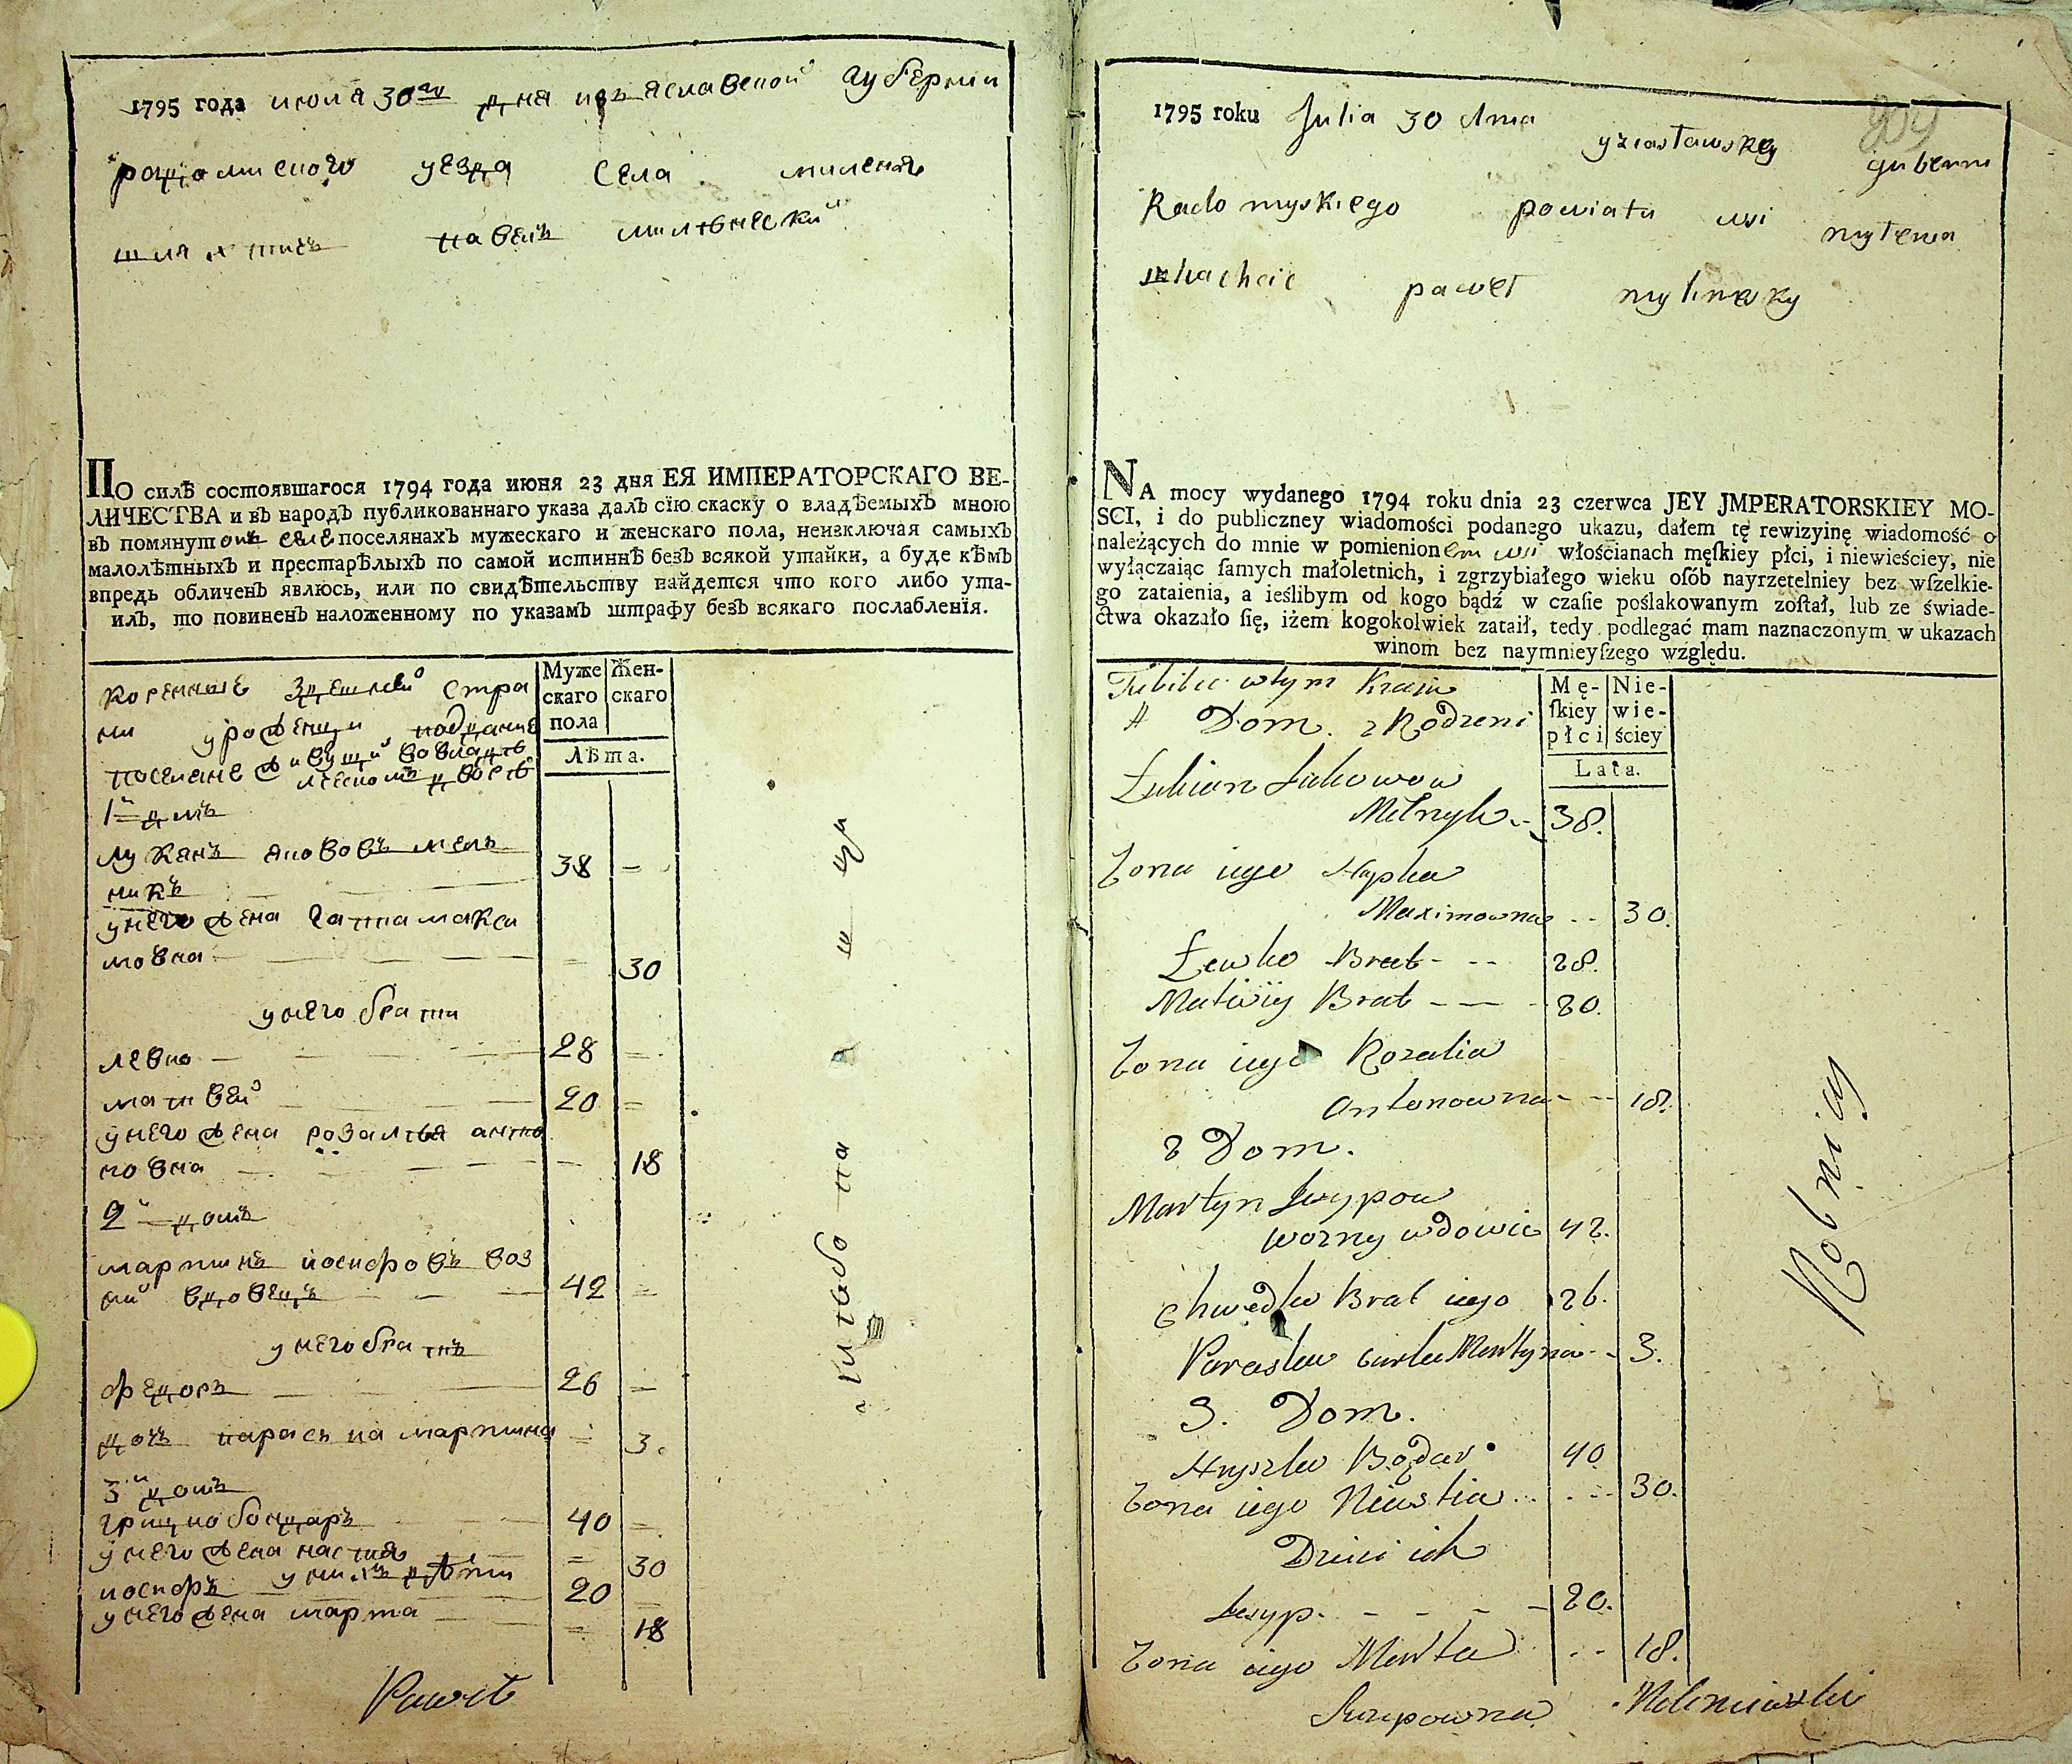 1795 года июля 30го дня изъяславской губернии
радомиского уезда села миленя
шляхтичъ павелъ милѣнески
ПО силѣ состоявшагося 1794 года июня 23 дня ЕЯ ИМПЕРАТОРСКАГО ВЕ-
ЛИЧЕСТВА и въ народъ публикованнаго указа далъ сїю скаску о владѣемыхъ мною
въ помянутомъ селе поселянахъ мужескаго и женскаго пола, неизключая самыхъ
малолѣтныхъ и престарѣлыхъ по самой истиннѣ безъ всякой утайки, а буде кѣмъ
впредь обличенъ явлюсь, или по свидѣтельству найдется что кого либо ута-
илъ, то повиненъ наложенному по указамъ штрафу безъ всякаго послабленія.
Муже
скаго
пола
Жен-
скаго
Лѣта.
1й домъ
луканъ якововъ мель
никъ 38
унего жена гаппа макси
мовна 30
унего брати
левко 28
матвей 20
унего жена розалия анто
новна 18
2й домъ
мартинъ иосифовъ воз
ни вдовецъ 42
унего братъ
федоръ 26
дочь параска мартина 3.
3й домъ
грицко бондаръ 40
унего жена настия 30
иосифъ унихъ дѣти 20
унего жена марта 18
Paweł
1795 roku Julia 30 dnia yziasławskey guberni
Radomyskiego powiatu wsi myłenia
szlachcic paweł mylinsky
NA mocy wydanego 1794 roku dnia 23 czerwca JEY JMPERATORSKIEY MO-
SCI, i do publiczney wiadomości podanego ukazu, dałem tę rewizyinę wiadomość o
należących do mnie w pomienionem wsi włościanach męſkiey płci, i niewieściey, nie
wyłączaiąc ſamych małoletnich, i zgrzybiałego wieku oſób nayrzetelniey bez wſzelkie-
go zataienia, a ieślibym od kogo bądź w czaſie poślakowanym zoſtał, lub ze świade-
ctwa okazało ſię, iżem kogokolwiek zataił, tedy podlegać mam naznaczonym w ukazach
winom bez naymnieyſzego względu.
w tym Kraiu
Dom. z Rodzeni
Mę-
ſkiey
płci
Nie-
wie-
ściey
Lata.
Łukian Jakowow
Melnyk 38.
Żona iego Hapka
Maximowna 30.
Łewko Brat 28.
Matwiy Brat 20.
Żona iego Rozalia
Antonowna 18.
2 Dom.
Martyn Jozypow
wozny wdowic 42.
Chwedko Brat iego 26.
Paraska curka Martyna 3.
3. Dom.
Hryszko Bądar 40
Żona iego Nastia 30.
Dzieci ich
Jozyp. 20.
Żona iego Marta 18.